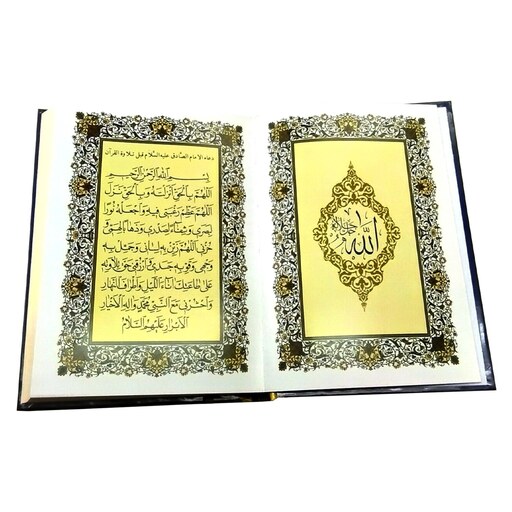 دعاء الامام الصادق عليه السلام قبل تلاوة القرآن
بسم الله الرحمن الرحيم
اللهم بالحق انزلته وبالحق نزل
اللهم عظم رغبتي فيه واجعله نورا
لبصري وشفاء لصدري وذهابا لهمي و
حزني اللهم زين به لساني وجمل به
وجهي وقو به جسدي وارزقني حق تلاوته
على طاعتك اناء الليل واطراف النهار
واحشرني مع النبي محمد واله الاخيار
الابرار عليهم السلام
الله جل جلاله